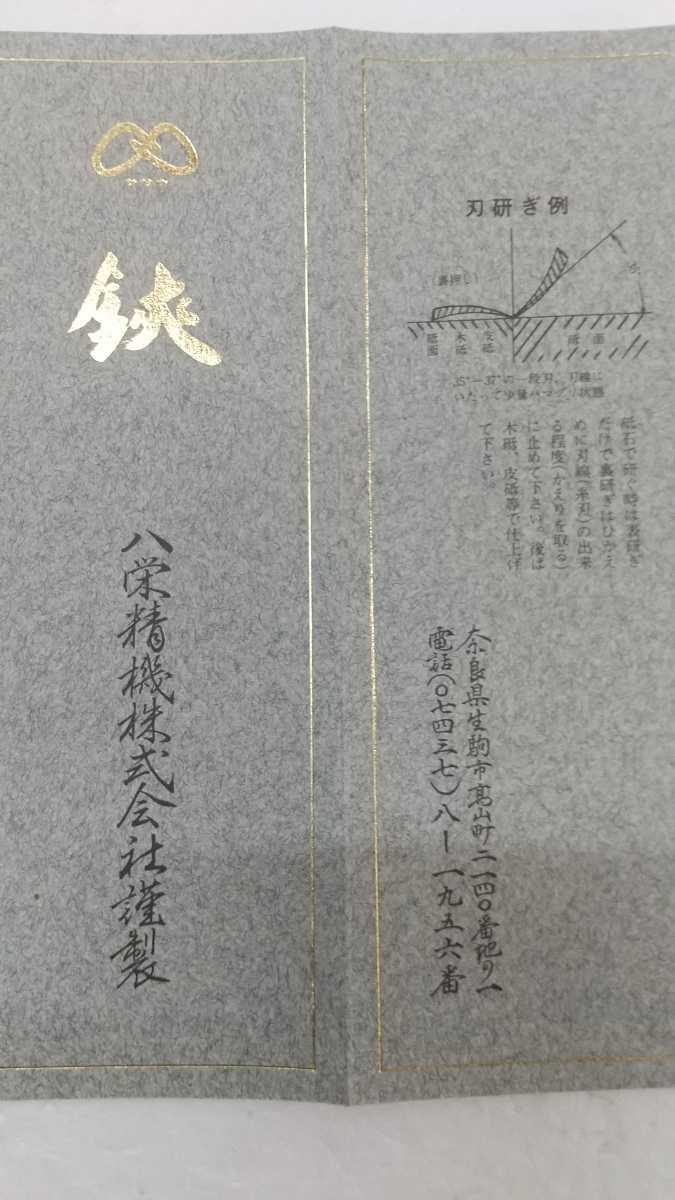 鋏
八栄精機株式会社謹製
刃研ぎ例
(裏押し)
砥面
木砥
皮砥
砥面
35°−37°の一段刃、刃線に
いたって少量ハマグリ状態
砥石で研ぐ時は表研ぎ
だけで裏研ぎはひかえ
めに刃線(糸刃)の出来
る程度(かえりを取る)
に止めて下さい。後は
木砥、皮砥等で仕上げ
て下さい。
奈良県生駒市高山町二一四〇番地の一
電話(〇七四三七)八ー一九五六番